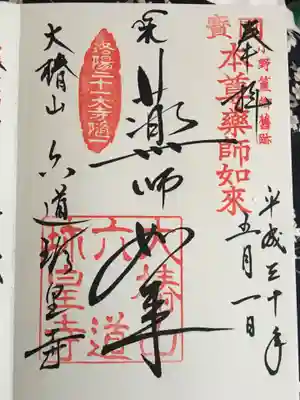 奉拝
本尊藥師如來
平成三十年
五月一日
洛陽二十一大寺随一
薬師如来
大椿山 六道珎皇寺
大椿山
六道
珎皇寺